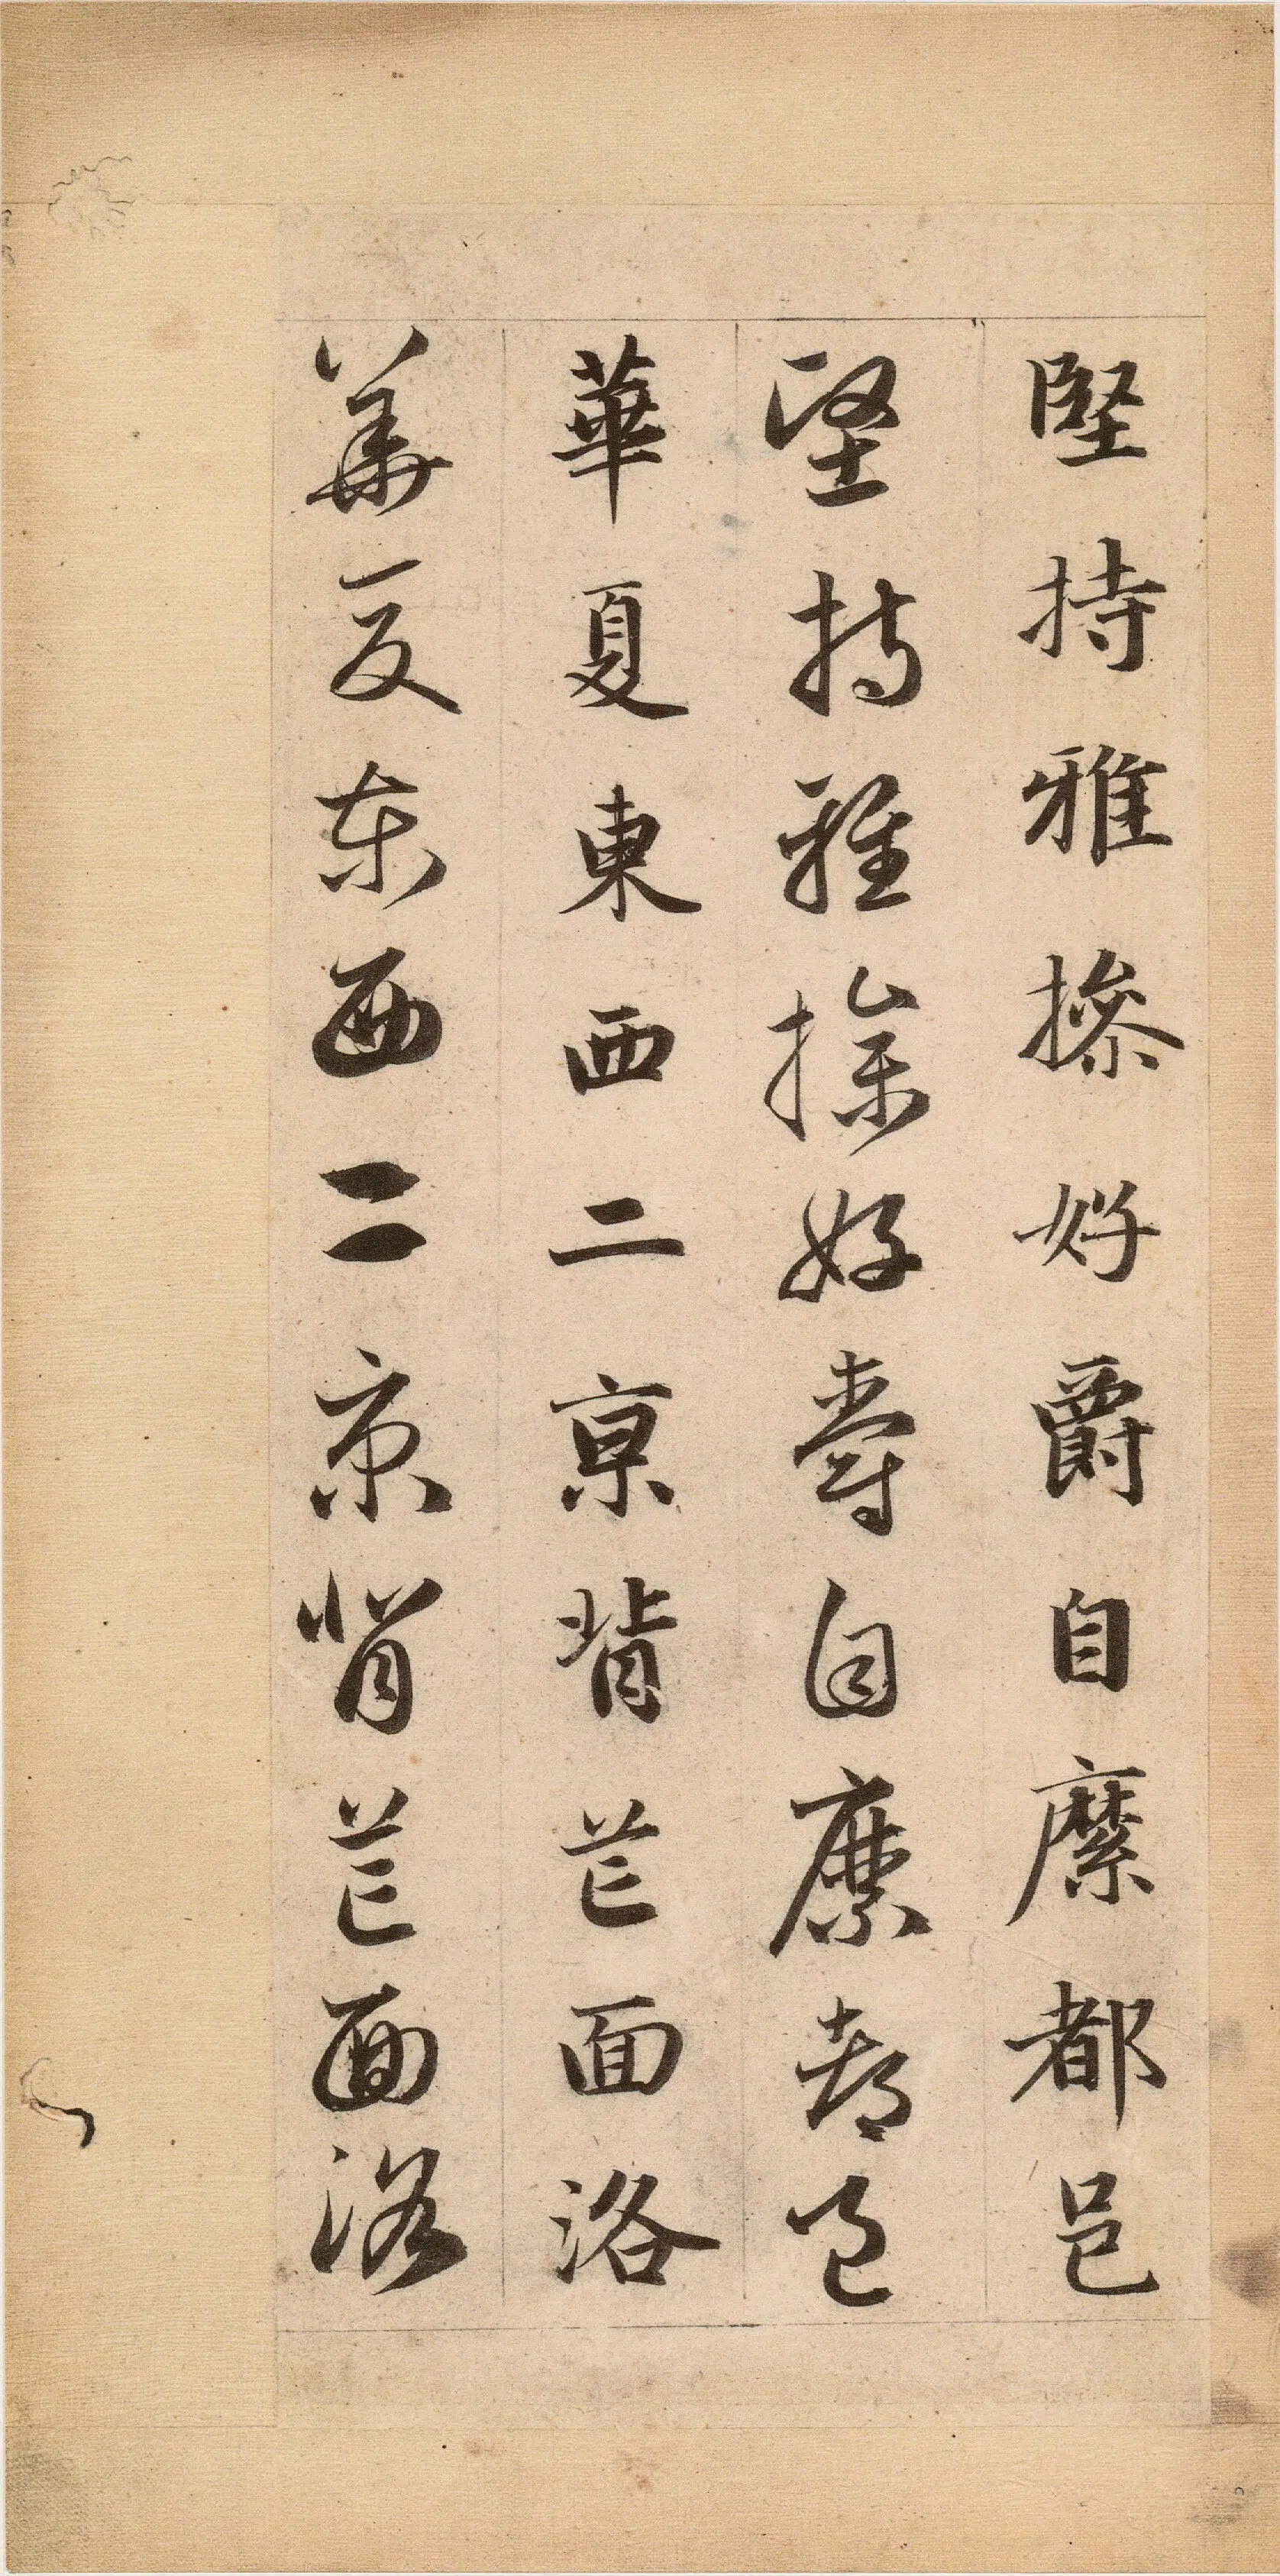 堅持雅操好爵自縻都邑
堅持雅操好爵自縻都邑
華夏東西二京背芒面洛
華夏東西二京背芒面洛